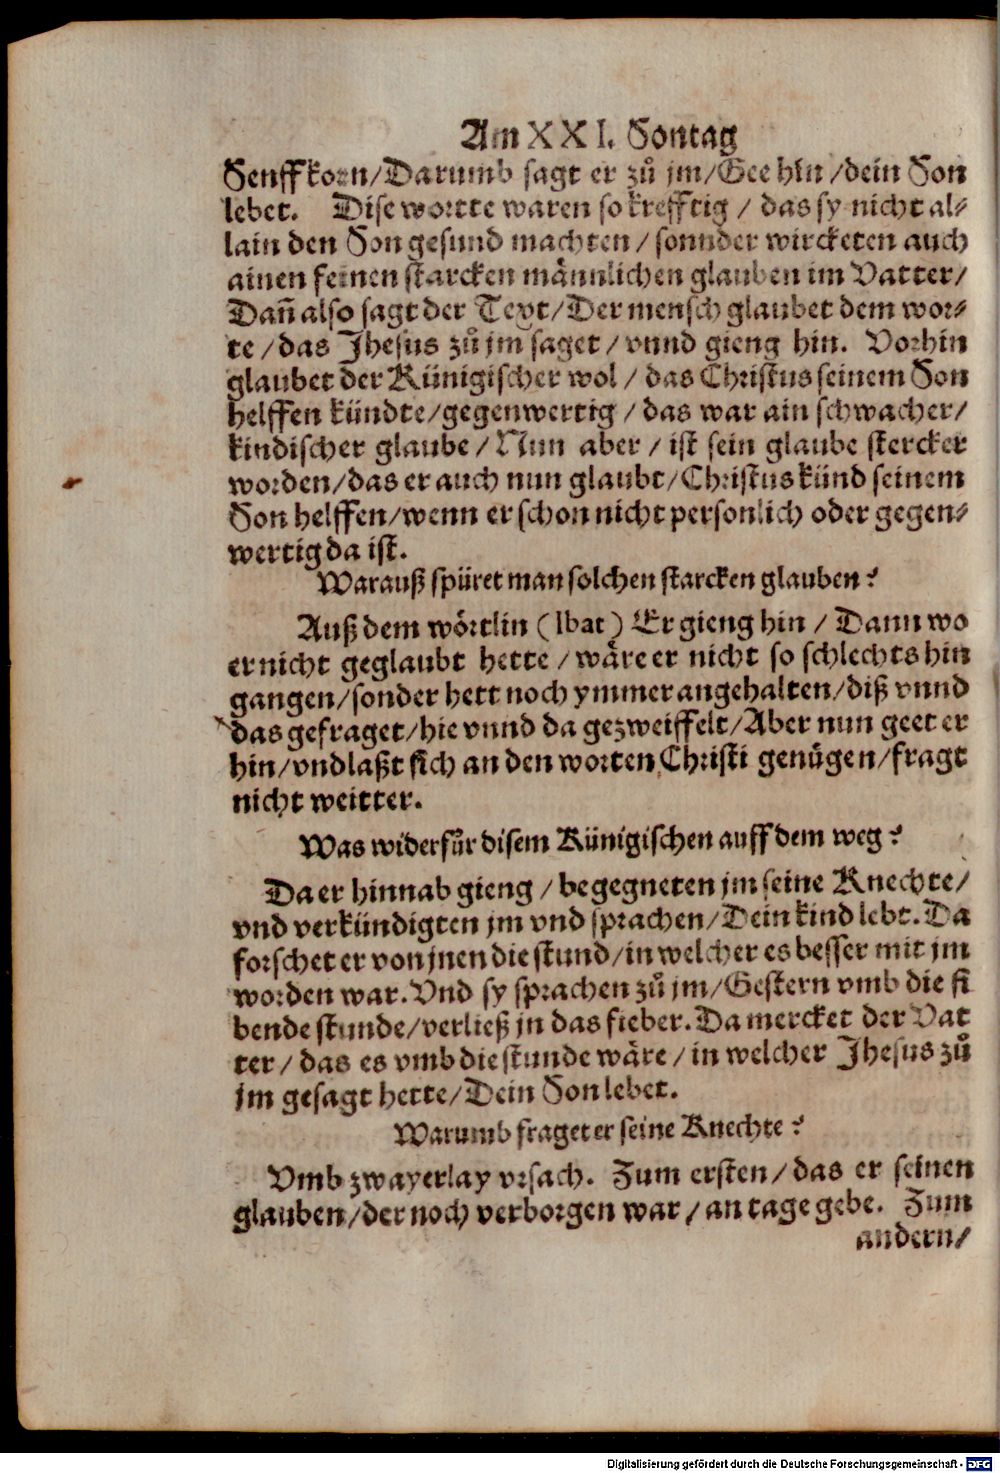 Am XXI. Sontag
Senffkorn/Darumb sagt er zů jm/Gee hin/dein Son
lebet. Dise wortte waren so krefftig / das sy nicht al-
lain den Son gesund machten / sonnder wircketen auch
ainen feinen starcken männlichen glauben im Vatter/
Dañ also sagt der Text/Der mensch glaubet dem wor-
te / das Jhesus zů jm saget / vnnd gieng hin. Vorhin
glaubet der Künigischer wol / das Christus seinem Son
helffen kündte/gegenwertig / das war ain schwacher/
kindischer glaube / Nun aber / ist sein glaube stercker
worden/das er auch nun glaubt/Christus künd seinem
Son helffen/wenn er schon nicht personlich oder gegen-
wertig da ist.
Warauß spüret man solchen starcken glauben?
Auß dem wörtlin (Ibat) Er gieng hin / Dann wo
er nicht geglaubt hette / wäre er nicht so schlechts hin
gangen/sonder hett noch ymmer angehalten/diß vnnd
das gefraget/hie vnnd da gezweiffelt/Aber nun geet er
hin/vnd laßt sich an den worten Christi genügen/fragt
nicht weitter.
Was widerfůr disem Künigischen auff dem weg?
Da er hinnab gieng / begegneten jm seine Knechte/
vnd verkündigten jm vnd sprachen/Dein kind lebt. Da
forschet er von jnen die stund/in welcher es besser mit jm
worden war. Vnd sy sprachen zů jm/Gestern vmb die si
bende stunde/verließ jn das fieber. Da mercket der Vat
ter / das es vmb die stunde wäre / in welcher Jhesus zů
jm gesagt hette/Dein Son lebet.
Warumb fraget er seine Knechte?
Vmb zwayerlay vrsach. Zum ersten / das er seinen
glauben/der noch verborgen war/an tage gebe. Zum
andern/
Digitalisierung gefördert durch die Deutsche Forschungsgemeinschaft - DFG